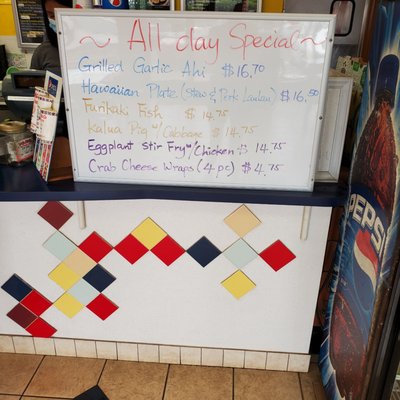 ~ All day Special ~
Grilled Garlic Ahi $16.70
Hawaiian Plate (Stew & Pork Laulau) $16.50
Furikaki Fish $14.75
Kalua Pig w/ Cabbage $14.75
Eggplant Stir Fry w/ Chicken $14.75
Crab Cheese Wraps (4 pc) $4.75
PEPSI